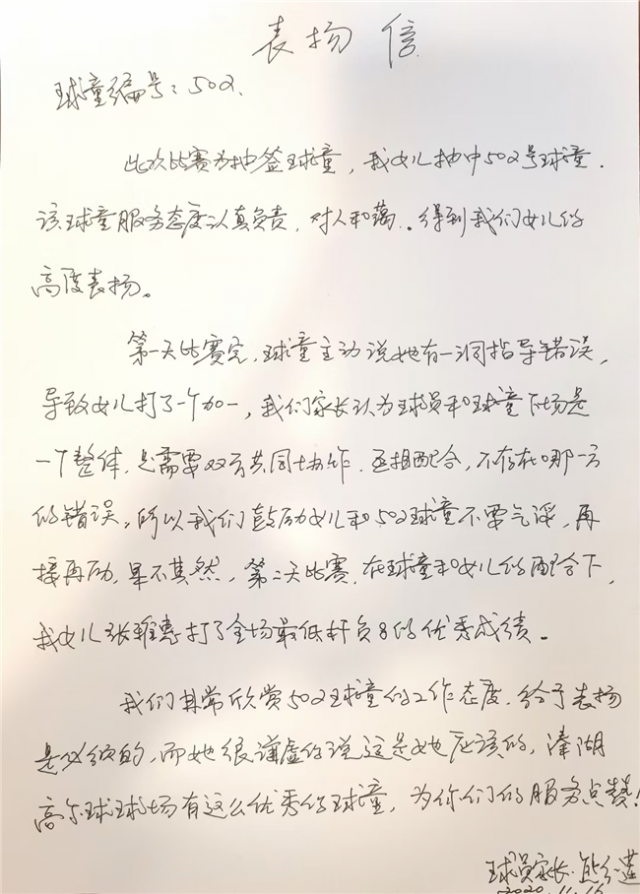 表扬信
球童编号：502.
此次比赛为抽签球童，我女儿抽中502号球童.
该球童服务态度认真负责，对人和蔼.得到我们女儿的
高度表扬。
第一天比赛完，球童主动说她有一洞指导错误，
导致女儿打了一个加一，我们家长认为球员和球童下场是
一个整体，是需要双方共同协作.互相配合，不存在哪一方
的错误，所以我们鼓励女儿和502球童不要气馁，再
接再励，果不其然，第二天比赛，在球童和女儿的配合下，
我女儿张雅惠打了全场最低杆负8的优秀成绩。
我们非常欣赏502球童的工作态度，给予表扬
是必须的，而她很谦虚的说这是她应该的，湖
高尔球球场有这么优秀的球童，为你们的服务点赞！
球员家长：熊
2020.11.